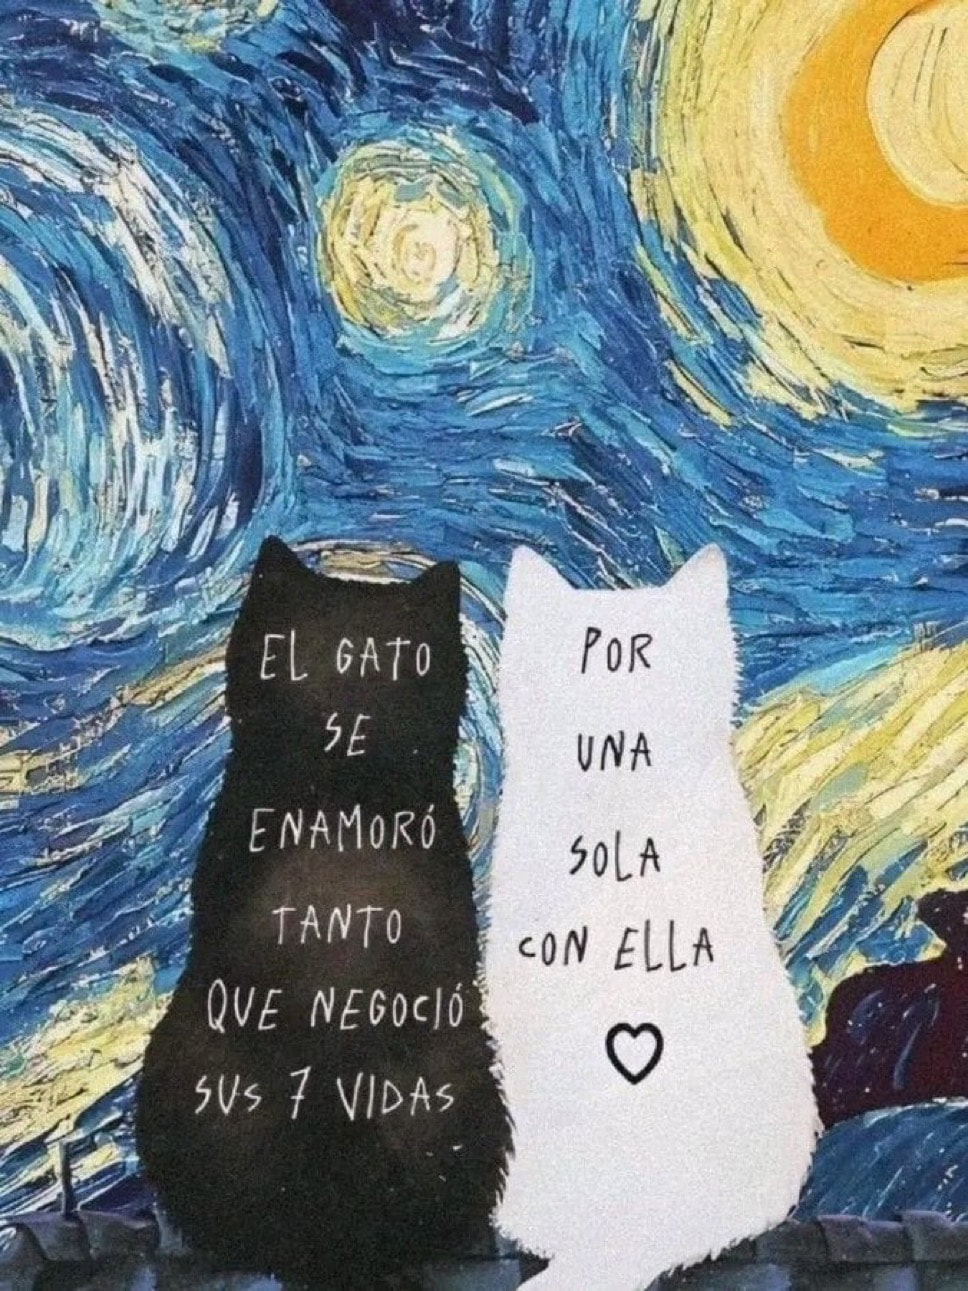 EL GATO
SE
ENAMORÓ
TANTO
QUE NEGOCIÓ
SUS 7 VIDAS
POR
UNA
SOLA
CON ELLA